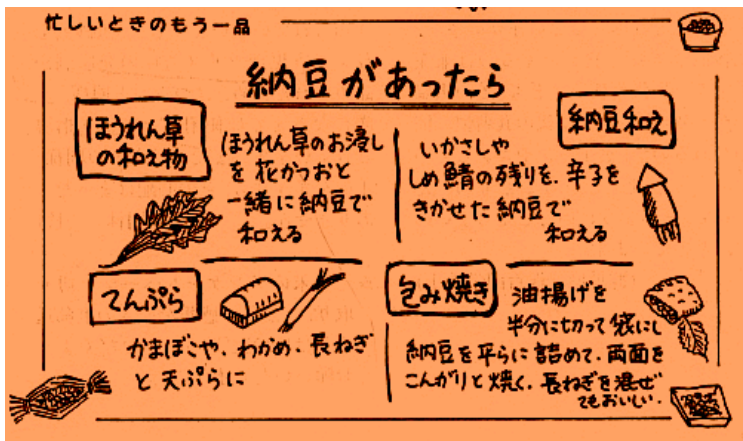 忙しいときのもう一品
納豆があったら
ほうれん草
の和え物
ほうれん草のお浸し
を花かつおと
一緒に納豆で
和える
納豆和え
いかさしや
しめ鯖の残りを、辛子を
きかせた納豆で
和える
てんぷら
かまぼこや、わかめ、長ねぎ
と天ぷらに
包み焼き
油揚げを
半分に切って袋にし
納豆を平らに詰めて、両面を
こんがりと焼く、長ねぎを混ぜ
てもおいしい.